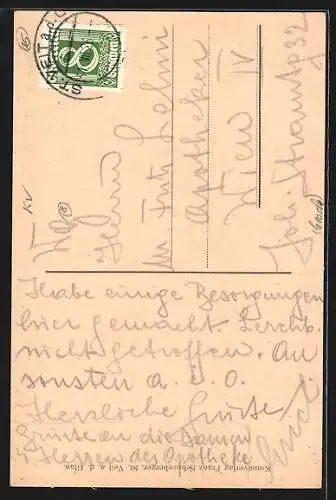 ST. VEIT a. d. G
8
Groschen
KV
Wg (8)
Herrn
Mr Fritz Lehni
Apotheker
Wien IV
Joh. Straussg 32
Habe einige Besorgungen
hier gemacht. Lerchb.
nicht getroffen. An
sonsten a. i. O.
Herzliche Grüsse
Grüsse an die Damen
u Herren der Apotheke
Kunstverlag Franz Schneeberger, St. Veit a. d. Glan.